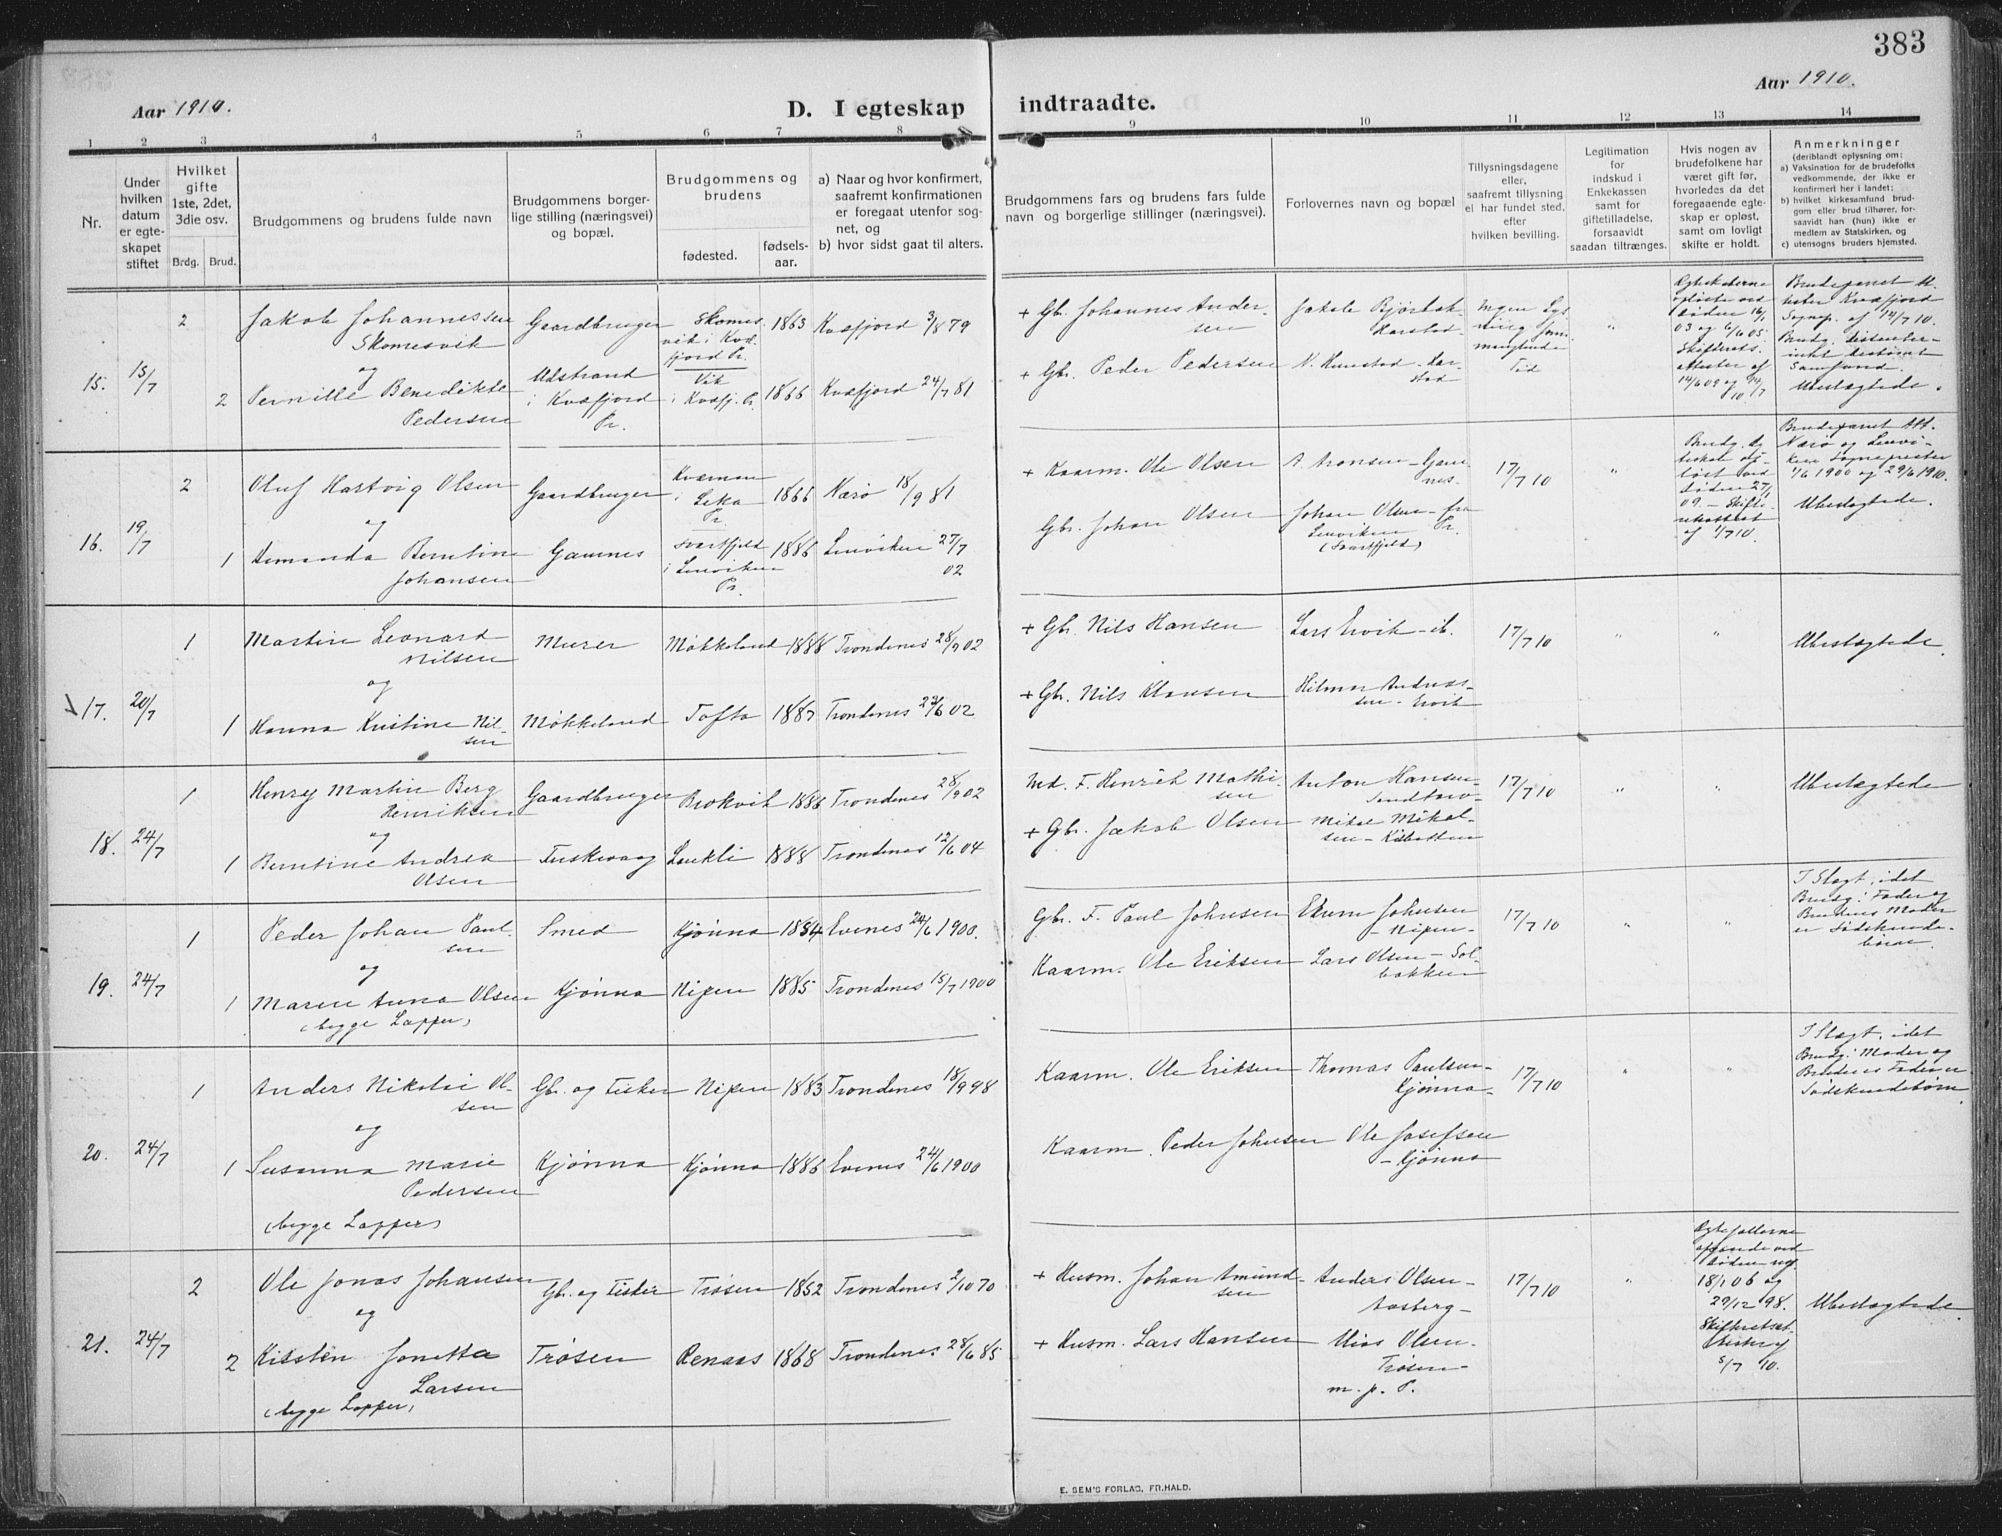 383
Aar 1910.
D. I egteskap indtraadte.
Aar 1910.
1 2 3 4 5 6 7 8 9 10 11 12 13 14
Nr.
Under
hvilken
datum
er egte-
skapet
stiftet
Hvilket
gifte
1ste, 2det,
3die osv.
Brdg. Brud.
Brudgommens og brudens fulde navn
Brudgommens borger-
lige stilling (næringsvei)
og bopæl.
Brudgommens og
brudens
fødested.
fødsels-
aar.
a) Naar og hvor konfirmert,
saafremt konfirmationen
er foregaat utenfor sog-
net, og
b) hvor sidst gaat til alters.
Brudgommens fars og brudens fars fulde
navn og borgerlige stillinger (næringsvei).
Forlovernes navn og bopæl
Tillysningsdagene
eller,
saafremt tillysning
ei har fundet sted,
efter
hvilken bevilling.
Legitimation
for
indskud i
Enkekassen
samt for
giftetilladelse,
forsaavidt
saadan tiltrænges.
Hvis nogen av
brudefolkene har
været gift før,
hvorledes da det
foregaaende egte-
skap er opløst,
samt om lovligt
skifte er holdt.
Anmerkninger
(deriblandt oplysning om:
a) Vaksination for de brudefolks
vedkommende, der ikke er
konfirmert her i landet;
b) hvilket kirkesamfund brud-
gom eller brud tilhører, for-
saavidt han (hun) ikke er
medlem av Statskirken, og
c) utensogns bruders hjemsted.
15. 15/7
2 Jakob Johannessen
Skomesvik
og
2 Pernille Benedikte
Pedersen
Gaardbruger
Udstrand
i Kvæfjord
Pr.
Skomes-
vik i Kvæ-
fjord Pr.
Vik
i Kvæfj. Pr.
1863
1866
Kvæfjord 3/8 79
Kvæfjord 24/7 81
+ Gb. Johannes Ander-
sen
+ Gb. Peder Pedersen
Jakob
Harstad
Har-
stad
Ingen Lys-
ning
Tid
"
døden 16/1
03 og 6/6 05.
Skifterets-
attester af
14/6 09 og
Brudeparret
Kvæfjord
Sognep. af 14/7 10.
Samfund.
Ubeslægtede.
16. 19/7
2 Oluf Hartvig Olsen
og
1 Amanda Berntine
Johansen
Gaardbruger
Gamnes
i
Leka
Pr.
Svartfjeld
i Lenviken
Pr.
1866
1886
Nærø 18/9 81
Lenviken 27/7
02
+ Kaarm. Ole Olsen
Gbr. Johan Olsen
A. Aronsen - Gam-
nes.
Johan Olsen - fra
Lenviken Pr.
(Svartfjeld)
17/7 10
"
Brudg. Æg-
teskab op-
løst ved
døden 27/1
09. - Skifte-
af 1/7 10.
Brudeparret Att.
Nærø og Lenvi-
ken Sogneprester
1/6 1900 og 29/6 1910.
Ubeslægtede.
17. 20/7
1 Martin Leonard
Nilsen
og
1 Hanna Kristine Nil-
sen
Murer
Møkkeland
Møkkeland
Tofta
1888
1887
Trondenes 28/9 02
Trondenes 02
+ Gbr. Nils Hansen
+ Gbr. Nils Hansen
Lars Ervik - ib.
Hilmar Andreas-
sen - Ervik
17/7 10
" "
Ubeslægtede.
18. 24/7
1 Henry Martin Berg
Henriksen
og
1 Berntine Andrea
Olsen
Gaardbruger
Fuskevaag
Brokvik
Laukli
1886
1888
Trondenes 28/9 02
Trondenes 12/6 04
F. Henrik Mathi-
sen
+ Gbr. Jakob Olsen
Anton Hansen -
Sandtorv -
Mikal Mikal-
sen -
17/7 10
" "
Ubeslægtede
19. 24/7
1 Peder Johan Paul-
sen
og
1 Maren Anna Olsen
(begge Lapper)
Smed
Kjønna
Kjønna
Nipen
1884
1885
Evenes 24/6 1900.
Trondenes 15/7 1900
Gbr. F. Paul Johnsen
Kaarm. Ole Eriksen
Johnsen
- Nipen -
Lars Olsen - Sol-
bakken
17/7 10
" "
I Slægt, idet
Brudg: Fader og
Brudens Moder
er Sødskende-
børn.
20. 24/7
1 Anders Nikolai Ol-
sen
og
1 Susanna Marie
Pedersen
(begge Lapper)
Gbr. og Fisker
Kjønna
Nipen
Kjønna
1883
1886
Trondenes 18/9 98
Evenes 24/6 1900
Kaarm. Ole Eriksen
Kaarm. Peder Johnsen
Thomas Paulsen -
Kjønna -
Ole Josefsen
- Kjønna
17/7 10
" "
I Slægt, idet
Brudg: Moder og
Brudens Fader er
Sødskendebørn.
21. 24/7
2 Ole Jonas Johansen
og
2 Kirsten Jonetta
Larsen
(begge Lapper)
Gbr. og Fisker
Trøsen
Trøsen
Renaas
1852
1868
Trondenes 2/10 70
Trondenes 28/6 85
+ Husm. Johan Amund-
sen
+ Husm. Lars Hansen
Anders Olsen -
Aasberg -
Olsen -
Trøsen -
m. p. P.
17/7 10
"
Ægtefællerne
afgaaede ved
døden
18/1 06 og
29/12 98.
5/7 10.
Ubeslægtede.
E. SEM'S FORLAG, FR.HALD.